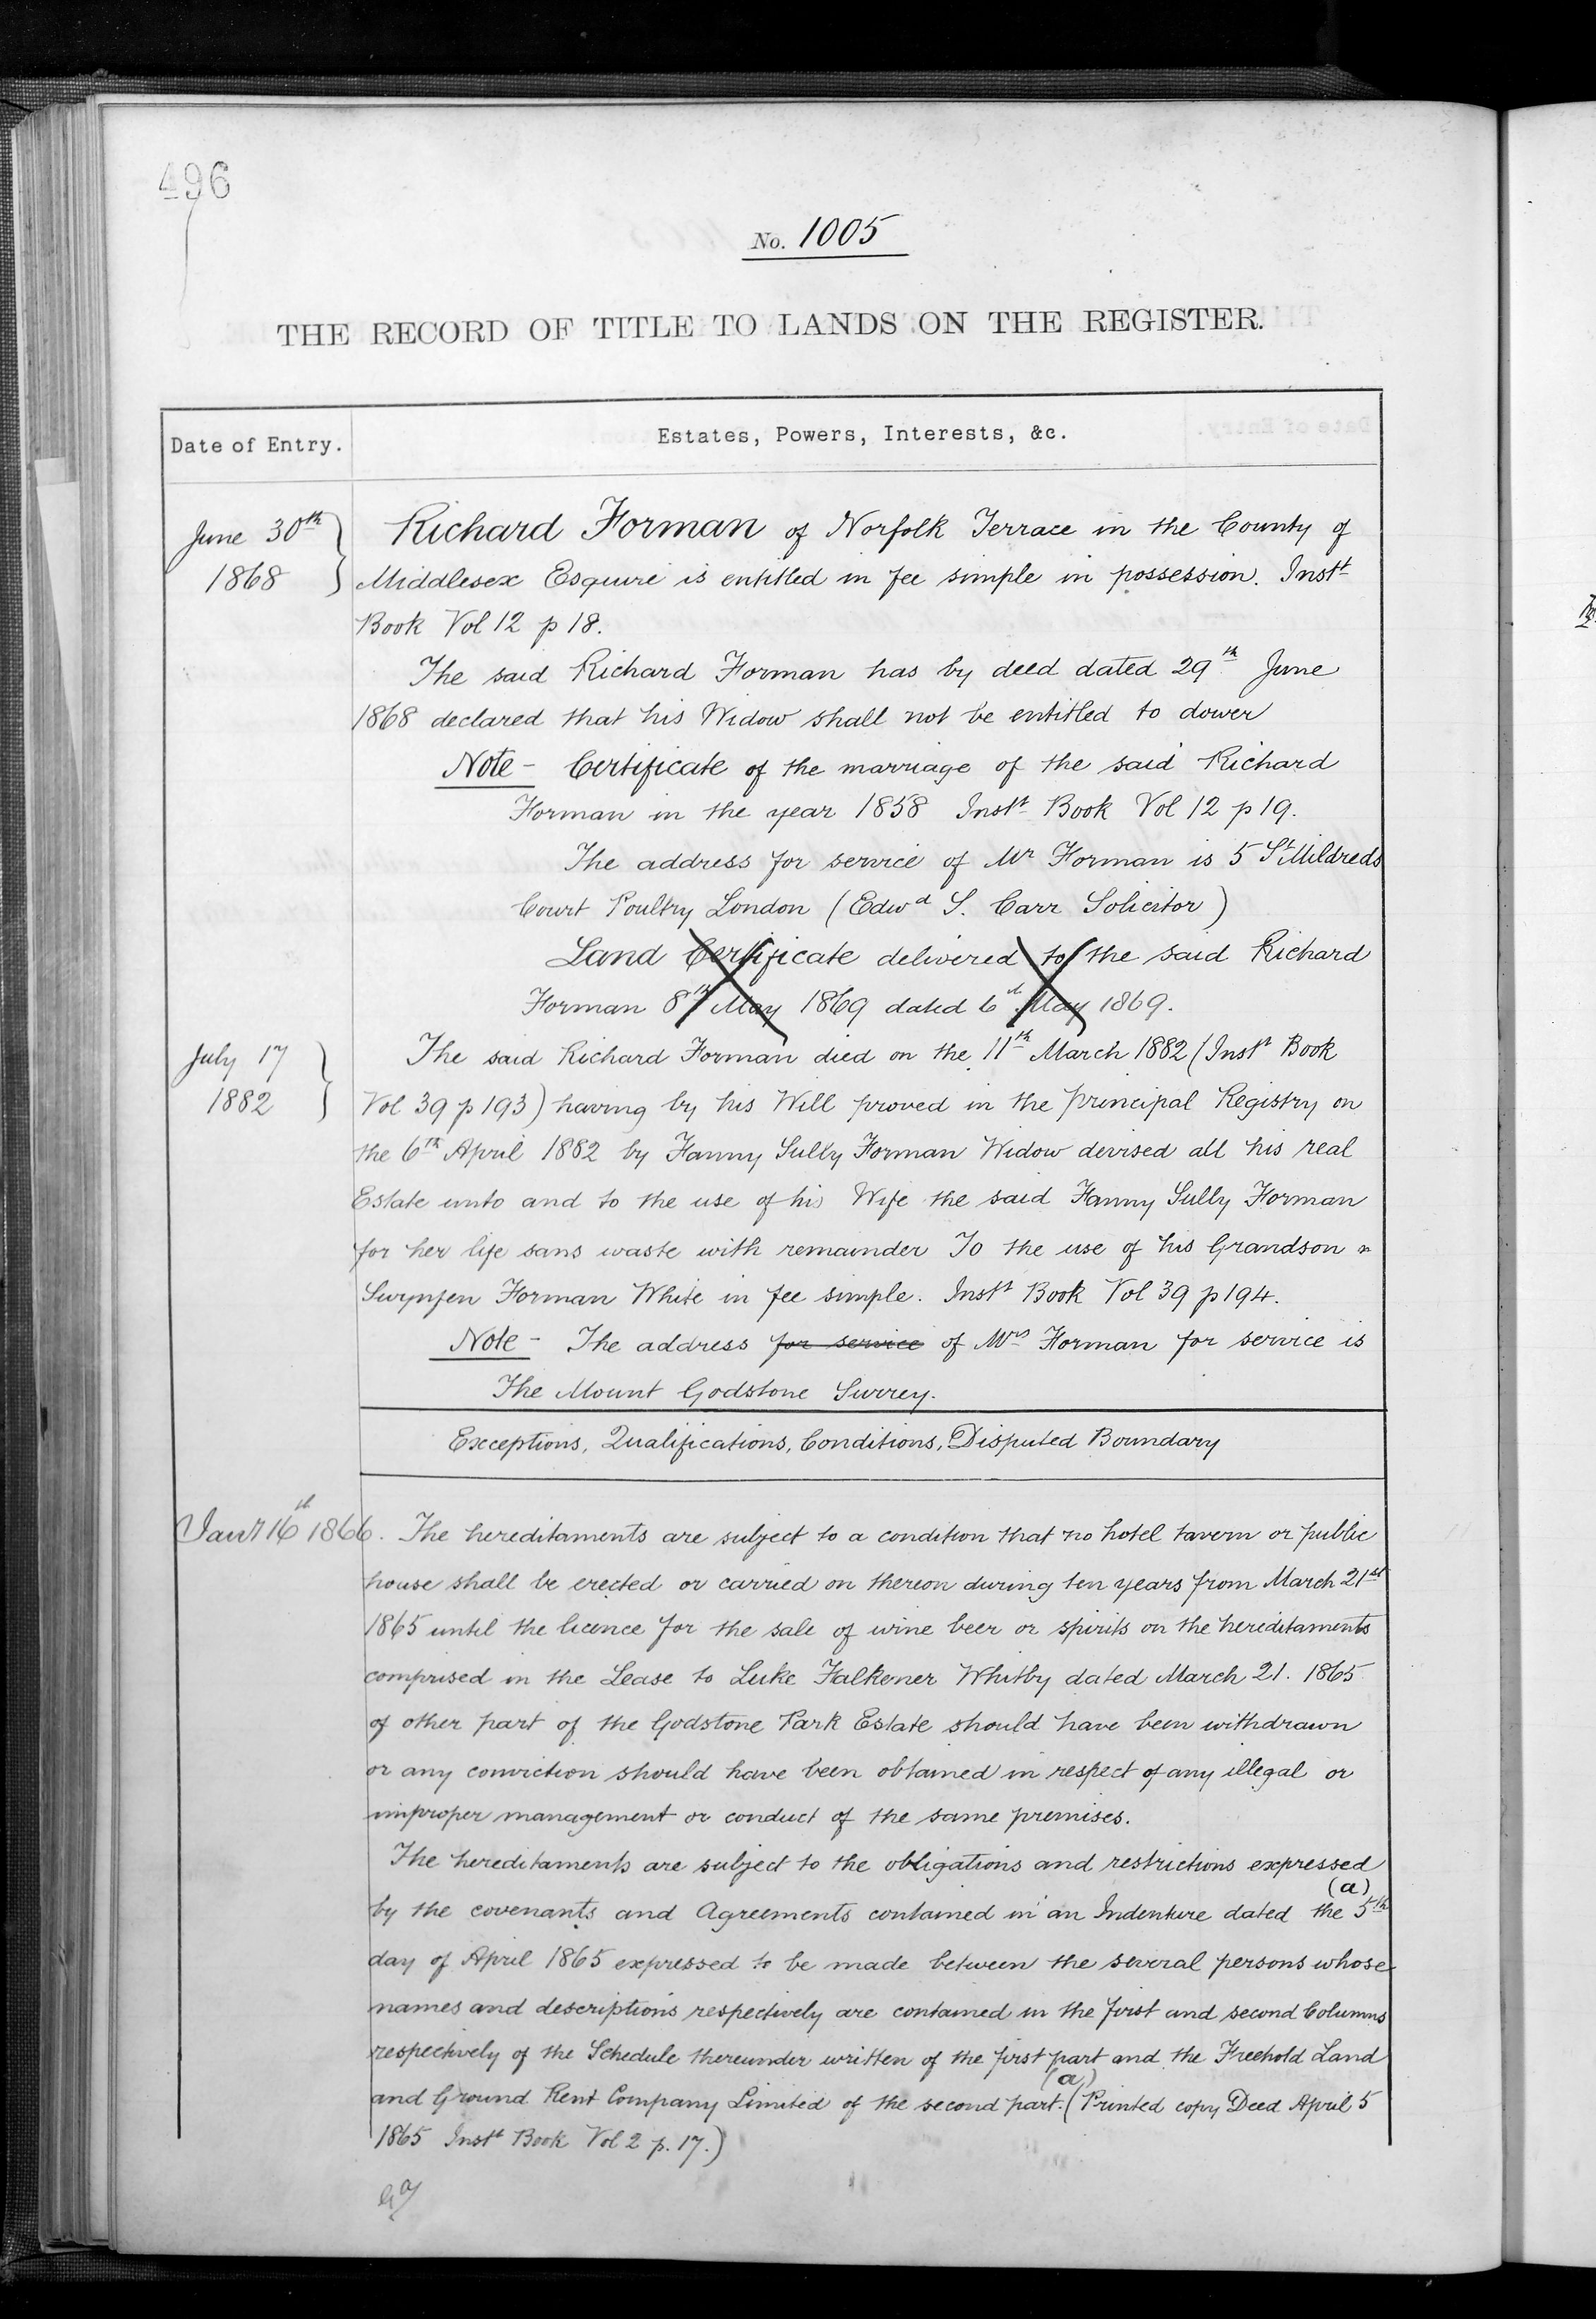 496
No. 1005
THE RECORD OF TITLE TO LANDS ON THE REGISTER.
Date of Entry.
Estates, Powers, Interests, &c.
June 30th
1868
Richard Forman of Norfolk Terrace in the County of
Middlesex Esquire is entitled in fee simple in possession. Instt
Book Vol 12 p 18.
The said Richard Forman has by deed dated 29th June
1868 declared that his Widow shall not be entitled to dower
Note - Certificate of the marriage of the said Richard
Forman in the year 1858 Instt Book Vol 12 p 19.
The address for service of Mr Forman is 5 St Mildreds
Court Poultry London (Edwd S. Carr Solicitor)
Land Certificate delivered to the said Richard
Forman 8th May 1869 dated 6th May 1869.
July 17
1882
The said Richard Forman died on the 11th March 1882 (Instt Book
Vol 39 p 193) having by his Will proved in the principal Registry on
the 6th April 1882 by Fanny Sully Forman Widow devised all his real
Estate unto and to the use of his Wife the said Fanny Sully Forman
for her life sans waste with remainder To the use of his Grandson
Swynfen Forman White in fee simple. Instt Book Vol 39 p 194.
Note - The address for service of Mrs Forman for service is
The Mount Godstone Surrey.
Exceptions, Qualifications, Conditions, Disputed Boundary
Jany 16th 1866. The hereditaments are subject to a condition that no hotel tavern or public
house shall be erected or carried on thereon during ten years from March 21st
1865 until the licence for the sale of wine beer or spirits on the hereditaments
comprised in the Lease to Luke Falkener Whitby dated March 21. 1865
of other part of the Godstone Park Estate should have been withdrawn
or any conviction should have been obtained in respect of any illegal or
improper management or conduct of the same premises.
The hereditaments are subject to the obligations and restrictions expressed
(a)
by the covenants and Agreements contained in an Indenture dated the 5th
day of April 1865 expressed to be made between the several persons whose
names and descriptions respectively are contained in the first and second Columns
respectively of the Schedule thereunder written of the first part and the Freehold Land
(a)
and Ground Rent Company Limited of the second part. (Printed copy Deed April 5
1865 Instt Book Vol 2 p. 17.)